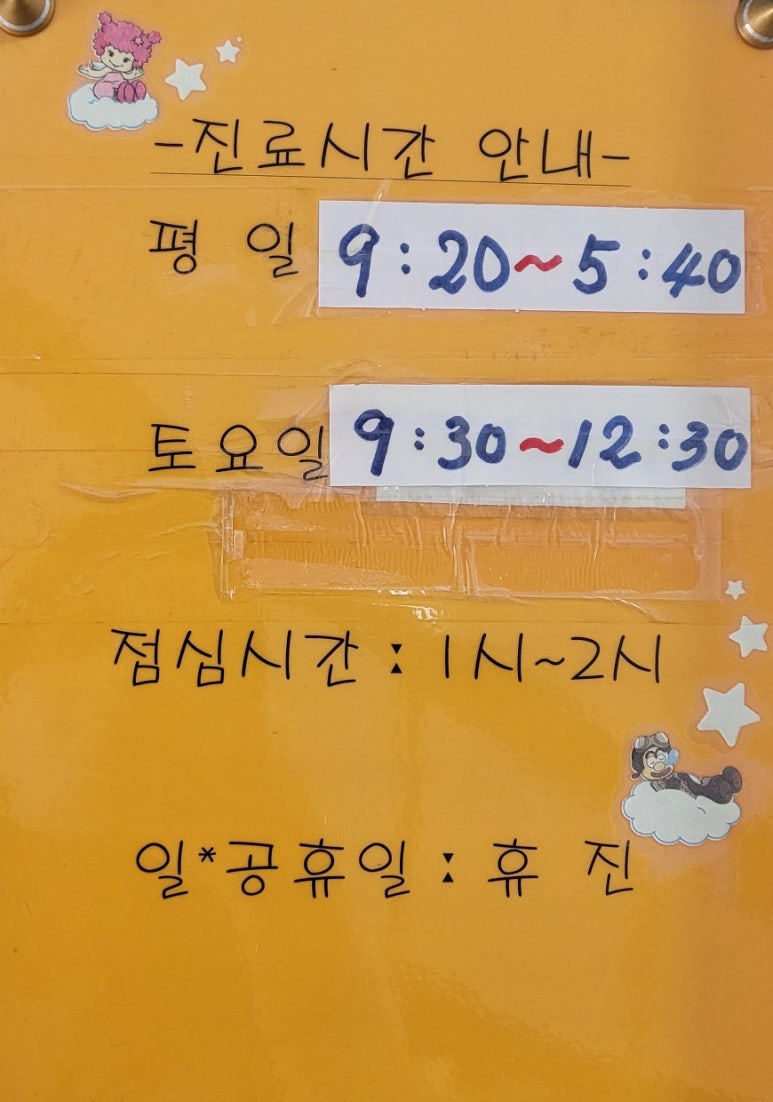 -진료시간 안내-
평 일 9:20~5:40
토요일 9:30~12:30
점심시간 : 1시~2시
일*공휴일 : 휴 진